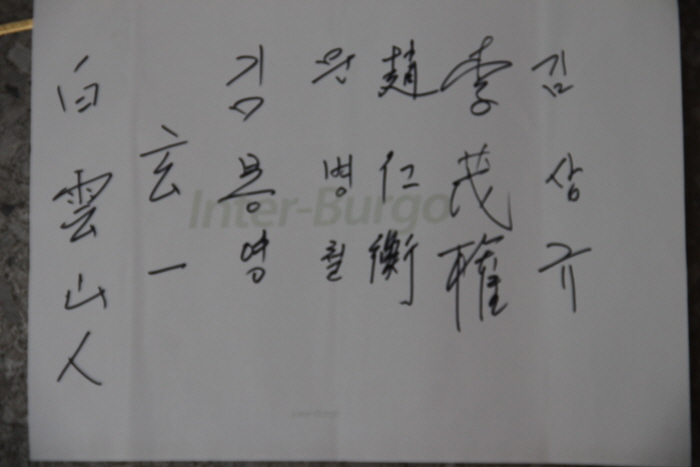 김상규
李茂權
趙仁衡
원병철
김용영
玄一
白雲山人
Inter-Burgo
Inter-Burgo